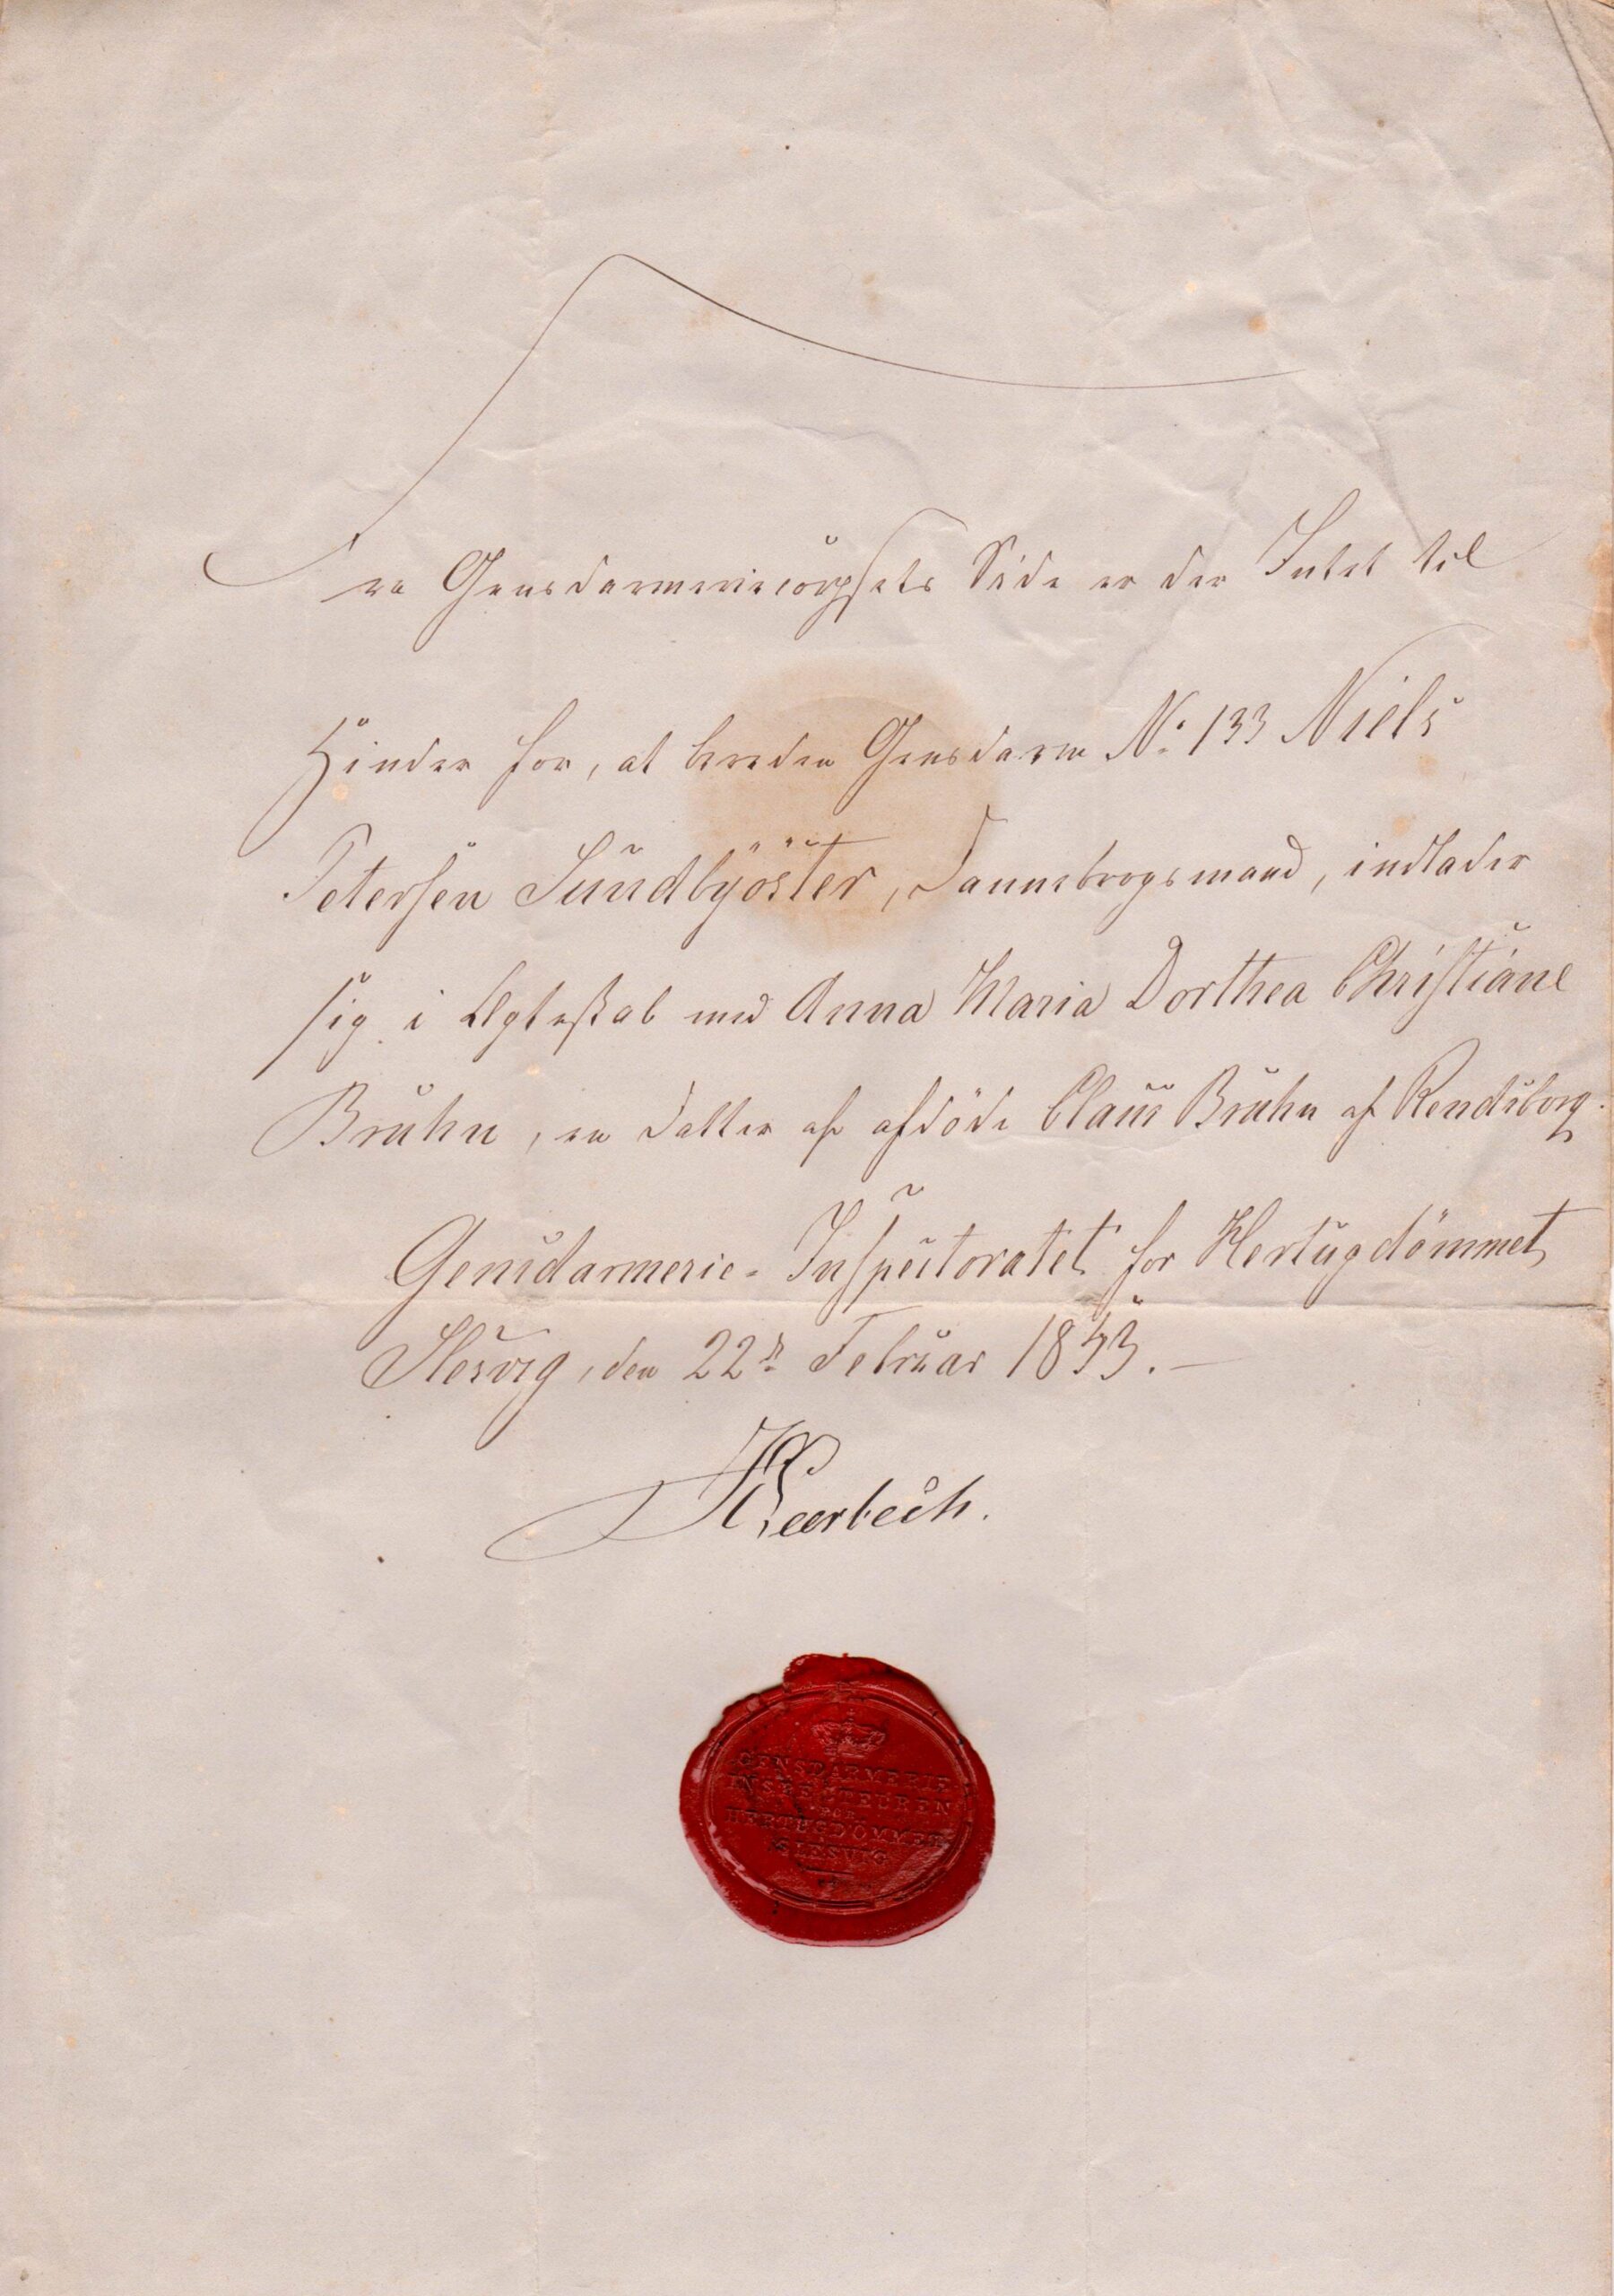 Fra Gensdarmericorpsets Side er der Intet til
Hinder for, at bereden Gensdarm No 133 Niels
Petersen Sundbyöster, Dannebrogsmand, indlader
sig i Ægteskab med Anna Maria Dorthea Christiane
Bruhn, en Datter af afdöde Claus Bruhn af Rendsborg.
Gensdarmerie-Inspectoratet for Hertugdömmet
Slesvig, den 22d Februar 1853.-
GENSDARMERIE
INSPECTEUREN
FOR
HERTUGDÖMMET
SLESVIG